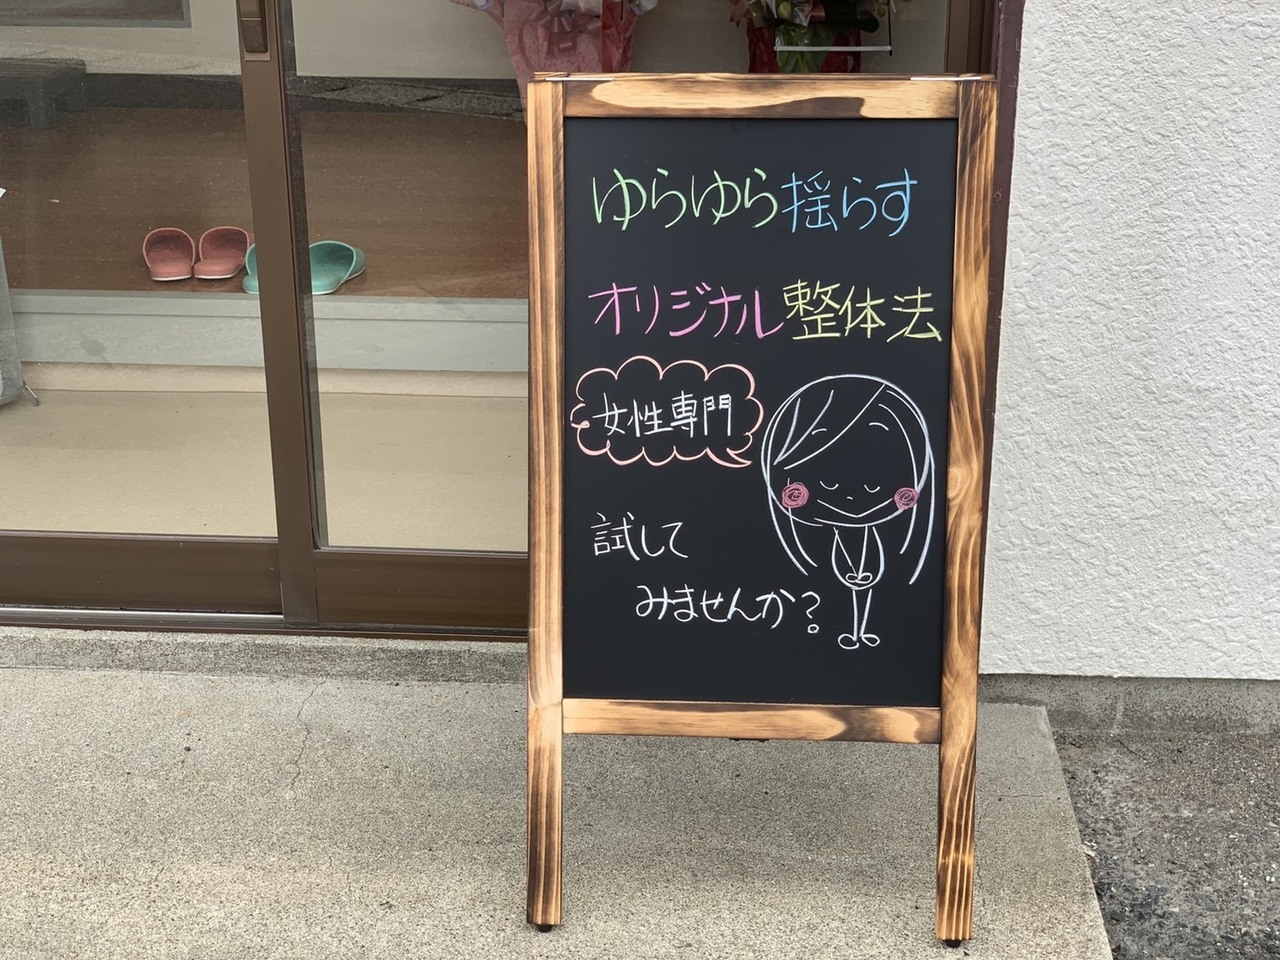 ゆらゆら揺らす
オリジナル整体法
女性専門
試して
みませんか?